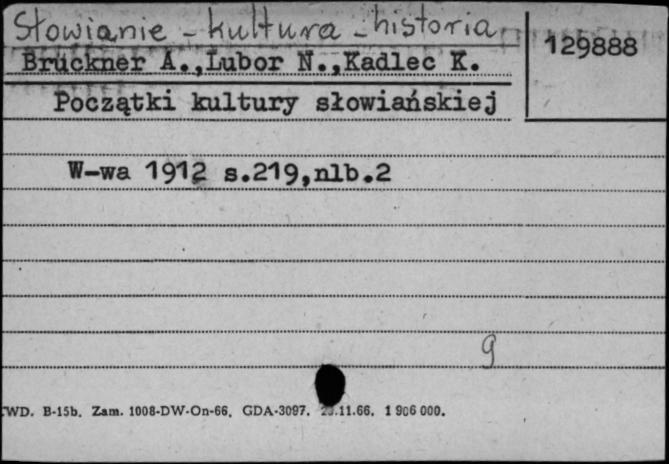 Słowianie - kultura - historia
129888
Brückner A., Lubor N., Kadlec K.
Początki kultury słowiańskiej
W-wa 1912 s.219,nlb.2
g
WD. B-15b. Zam. 1008-DW-On-66. GDA-3097. .11.66. 1 906 000.